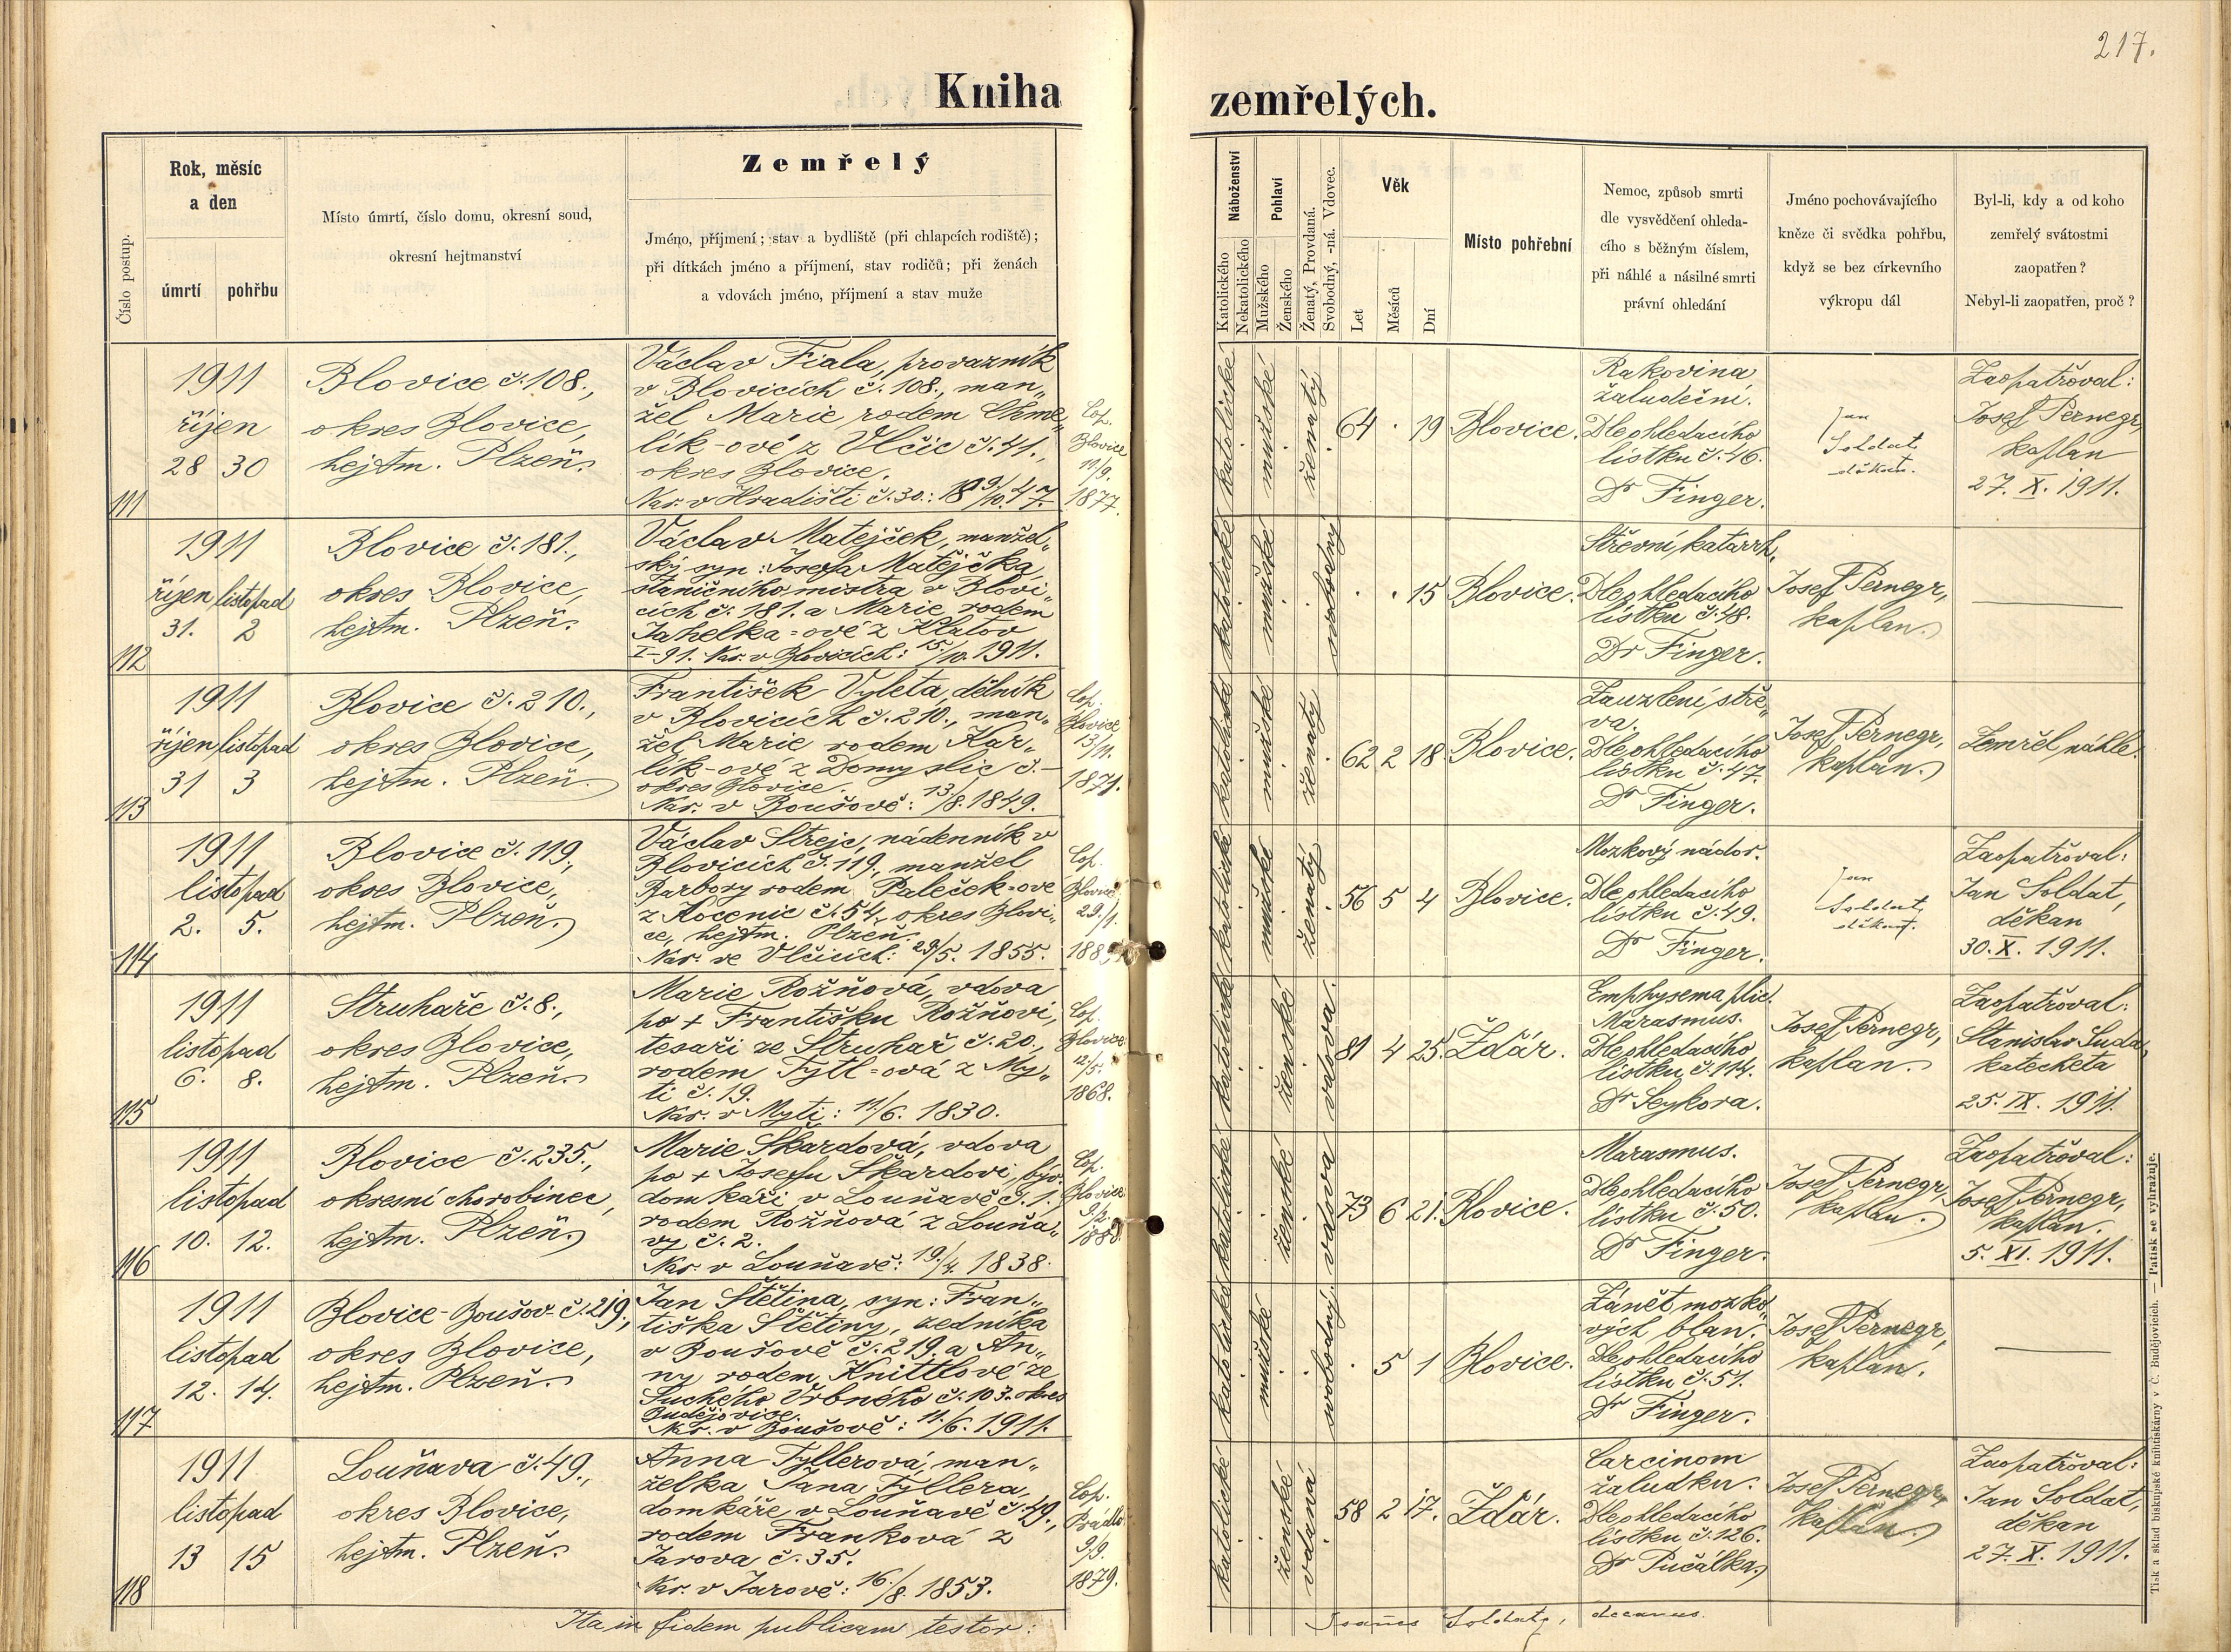 217.
Kniha zemřelých.
Číslo postup.
Rok, měsíc
a den
úmrtí
pohřbu
Místo úmrtí, číslo domu, okresní soud,
okresní hejtmanství
Zemřelý
Jméno, příjmení; stav a bydliště (při chlapcích rodiště);
při dítkách jméno a příjmení, stav rodičů; při ženách
a vdovách jméno, příjmení a stav muže
Náboženství
Katolického
Nekatolického
Pohlaví
Mužského
Ženského
Ženatý, Provdaná.
Svobodný, -ná. Vdovec.
Věk
Let
Měsíců
Dní
Místo pohřební
Nemoc, způsob smrti
dle vysvědčení ohleda-
cího s běžným číslem,
při náhlé a násilné smrti
právní ohledání
Jméno pochovávajícího
kněze či svědka pohřbu,
když se bez církevního
výkropu dál
Byl-li, kdy a od koho
zemřelý svátostmi
zaopatřen?
Nebyl-li zaopatřen, proč?
111
1911
říjen
28 30
Blovice č. 108.,
okres Blovice,
hejtm. Plzeň.
Václav Fiala, provazník
v Blovicích č. 108., man„
žel Marie rodem Chme„
lík-ové z Vlčic č. 41.,
okres Blovice.
Nar. v Hradišti č. 30.: 18 9/10. 47.
Cop.
Blovice
11/9.
1877.
katolické
mužské
ženatý
64 . 19
Blovice.
Rakovina
žaludeční.
Dle ohledacího
lístku č. 46.
Dr Finger.
Jan
Soldat,
děkan.
Zaopatřoval:
Josef Pernegr,
kaplan
27. X. 1911.
112
1911
říjen listopad
31. 2
Blovice č. 181.,
okres Blovice,
hejtm. Plzeň.
Václav Matejček, manžel„
ský syn: Josefa Matějčka,
staničního mistra v Blovi„
cích č. 181. a Marie, rodem
Jahelka-ové z Klatov
I-91. Nar. v Blovicích: 15./10. 1911.
katolické
mužské
svobodný
. . 15
Blovice.
Střevní katarrh.
Dle ohledacího
lístku č. 48.
Dr Finger.
Josef Pernegr,
kaplan.
113
1911
říjen listopad
31 3
Blovice č. 210.,
okres Blovice,
hejtm. Plzeň.
František Vyleta, dělník
v Blovicích č. 210., man„
žel Marie rodem Kar„
lík-ové z Domyslic č. -
okres Blovice.
Nar. v Boušově: 13./8. 1849.
Cop.
Blovice
13/11.
1871.
katolické
mužské
ženatý
62 2 18.
Blovice.
Zauzlení stře„
va.
Dle ohledacího
lístku č. 47.
Dr Finger.
Josef Pernegr,
kaplan.
Zemřel náhle.
114
1911
listopad
2. 5.
Blovice č. 119,
okres Blovice,
hejtm. Plzeň.
Václav Strejc, nádenník v
Blovicích č. 119, manžel
Barbory rodem Paleček-ové
z Kocenic č. 54, okres Blovi„
ce, hejtm. Plzeň.
Nar. ve Vlčicích: 29/5. 1855.
Cop.
Blovice
29./1.
katolické
mužské
ženatý
56 5 4
Blovice.
Mozkový nádor.
Dle ohledacího
lístku č. 49.
Dr Finger.
Jan
Soldat,
děkan.
Zaopatřoval:
Jan Soldat,
děkan
30. X. 1911.
115
1911
listopad
6. 8.
Struhaře č. 8.,
okres Blovice,
hejtm. Plzeň.
Marie Rožňová, vdova
po + Františku Rožňovi,
tesaři ze Struhař č. 20.,
rodem Tytl-ová z My„
ti č. 19.
Nar. v Myti: 11./6. 1830.
Cop.
Blovice
12/5.
1868.
katolické
ženské
vdova.
81 4 25.
Žďár.
Emphysema plic.
Marasmus.
Dle ohledacího
lístku č. 114.
Dr Seykora.
Josef Pernegr,
kaplan.
Zaopatřoval:
Stanislav Suda,
katecheta
25. IX. 1911.
116
1911
listopad
10. 12.
Blovice č. 235.,
okresní chorobinec,
hejtm. Plzeň.
Marie Škardová, vdova
po + Josefu Škardovi, býv.
domkáři v Louňavě č. 1.,
rodem Rožňová z Louňa„
vy č. 2.
Nar. v Louňavě: 19./4. 1838.
Cop.
Blovice
9/2.
katolické
ženské
vdova
73 6 21.
Blovice.
Marasmus.
Dle ohledacího
lístku č. 50.
Dr Finger.
Josef Pernegr,
kaplan.
Zaopatřoval:
Josef Pernegr,
kaplan.
5. XI. 1911.
117
1911
listopad
12. 14.
Blovice-Boušov-č. 219.,
okres Blovice,
hejtm. Plzeň.
Jan Štětina, syn: Fran„
tiška Štětiny, zedníka
v Boušově č. 219. a An„
ny rodem Knittlové ze
Suchého Vrbného č. 103. okres
Budějovice.
Nar. v Boušově: 11./6. 1911.
katolické
mužské
svobodný.
. 5 1
Blovice.
Zánět mozko„
vých blan.
Dle ohledacího
lístku č. 51.
Dr Finger.
Josef Pernegr,
kaplan.
118
1911
listopad
13 15
Louňava č. 49.,
okres Blovice,
hejtm. Plzeň.
Anna Fyllerová, man„
želka Jana Fyllera,
domkáře v Louňavě č. 49.,
rodem Franková z
Jarova č. 35.
Nar. v Jarově: 16./8. 1853.
Cop.
Prádlo
9./9.
1879.
katolické
ženské
vdaná
58 2 17.
Žďár.
Carcinom
žaludku.
Dle ohledacího
lístku č. 126.
Dr Pučálka.
Josef Pernegr,
kaplan.
Zaopatřoval:
Jan Soldat,
děkan
27. X. 1911.
Ita in fidem publicam testor:
Joañes Soldat, decanus.
Tisk a sklad biskupské knihtiskárny v Č. Budějovicích. — Patisk se vyhražuje.